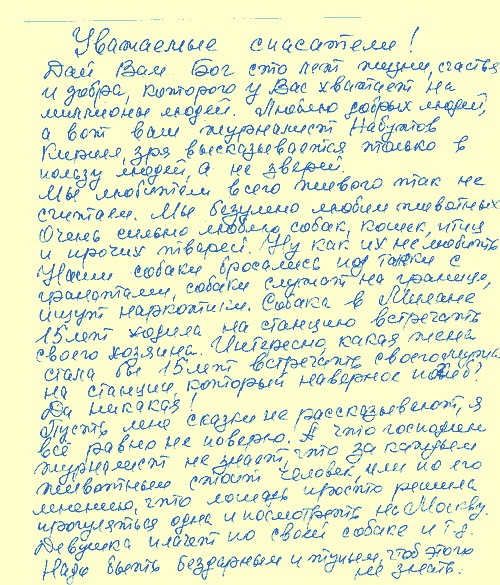 Уважаемые спасатели!
Дай Вам Бог сто лет жизни, счастья
и добра, которого у Вас хватает на
миллионы людей. Люблю добрых людей,
а вот ваш журналист Набутов
Кирилл, зря высказывается только в
пользу людей, а не зверей.
Мы любители всего живого так не
считаем. Мы безумно любим животных.
Очень сильно люблю собак, кошек, птиц
и прочих тварей. Ну как их не любить
Наши собаки бросались под танки с
гранатами, собаки служат на границе,
ищут наркотики. Собака в Милане
15 лет ходила на станцию встречать
своего хозяина. Интересно, какая жена
стала бы 15 лет встречать своего мужа
на станции, который наверное погиб?
Да никакая!
Пусть мне сказки не рассказывают, я
всё равно не поверю. А что господин
журналист не знает, что за каждым
животным стоит человек, или по его
мнению, что лошадь просто решила
прогуляться одна и посмотреть на Москву.
Девушка плачет по своей собаке и т.д.
Надо быть бездарным и тупым, чтоб этого
не знать.